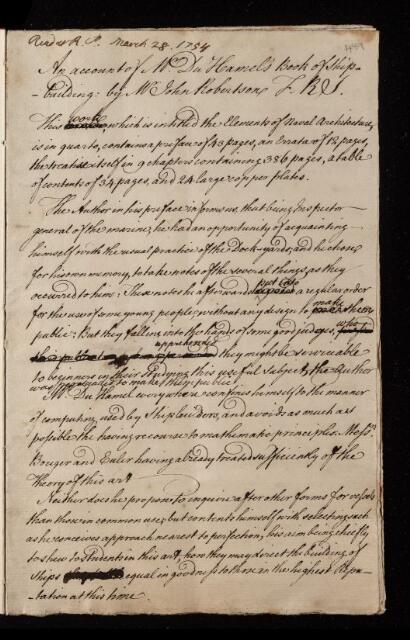 Read at R. S. March 28. 1754
An account of Mr Du Hamel's Book of Ship-
-building: by Mr John Robertson F.R.S.
This work, which is intitled the Elements of Naval Architecture,
is in quarto, contains a preface of 43 pages, an Errata of 12 pages,
the treatise itself in 9 chapters containing 386 pages, a table
of contents of 34 pages, and 24 large copper plates.
The Author in his preface informs us, that being Inspector-
general of the marine; he had an opportunity of acquainting
himself with the usual practice of the Dock-yards; and he chose
for his own memory, to take notes of the several things, as they
occurred to him: These notes he afterwards put into a regular order
for the use of some young people, without any design to make them
public: But they falling into the hands of some good judges, who
apprehended they might be serviceable
to beginners in their studying this useful subject, the Author
was persuaded to make them public.
Mr Du Hamel every where confines himself to the manner
of computing used by Shipbuilders, and avoids as much as
possible the having recourse to mathematic principles: Messrs
Bouger and Euler having already treated sufficiently of the
theory of this art
Neither does he propose to enquire after other forms for vessels
than those in common use; but contents himself with selecting such
as he conceives approach nearest to perfection; his aim being chiefly
to shew to Students in this art how they may direct the building of
Ships equal in goodness to those in the highest Repu-
-tation at this time.